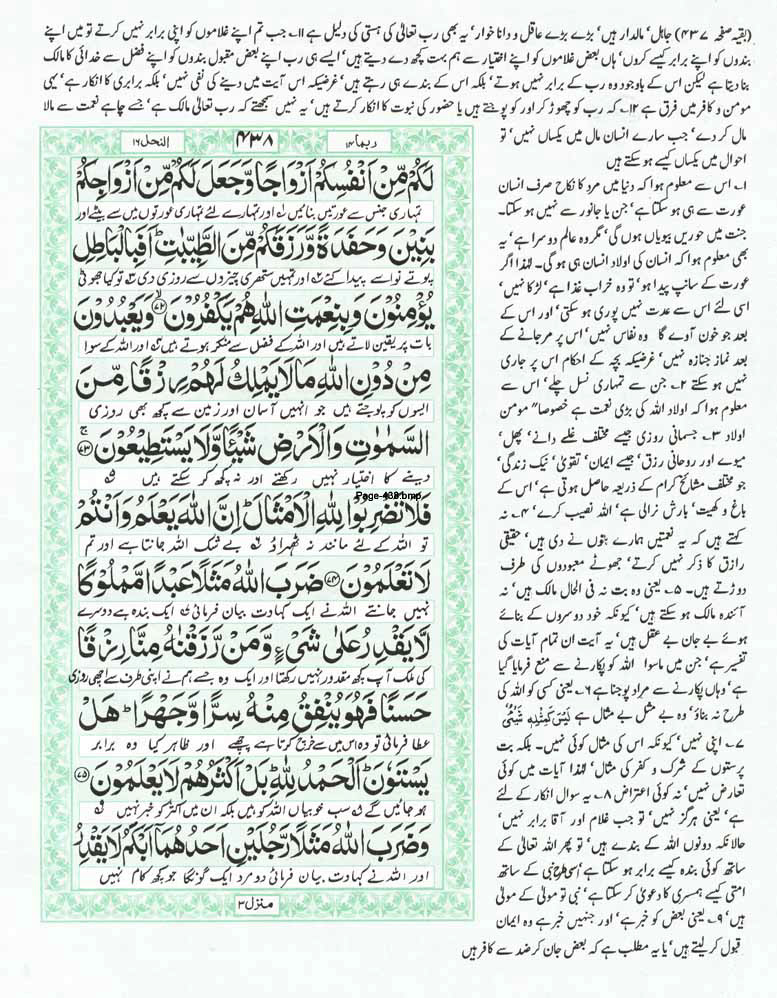 (بقیہ صفحہ ۴۳۷) جاہل، مالدار ہیں، بڑے بڑے عاقل و دانا خوار، یہ بھی رب تعالیٰ کی ہستی کی دلیل ہے ۱۱۔ جب تم اپنے غلاموں کو اپنی برابر نہیں کرتے تو میں اپنے
بندوں کو اپنے برابر کیسے کروں، ہاں بعض غلاموں کو اپنے اختیار سے ہم بہت کچھ دے دیتے ہیں، ایسے ہی رب اپنے بعض مقبول بندوں کو اپنے فضل سے خدائی کا مالک
بنا دیتا ہے لیکن اس کے باوجود وہ رب کے برابر نہیں ہوتے، بلکہ اس کے بندے ہی رہتے ہیں، غرضیکہ اس آیت میں دینے کی نفی نہیں، بلکہ برابری کا انکار ہے، یہی
مومن و کافر میں فرق ہے ۱۲۔ کہ رب کو چھوڑ کر اور کو پوجتے ہیں یا حضور کی نبوت کا انکار کرتے ہیں، یہ نہیں سمجھتے کہ رب تعالیٰ مالک ہے، جسے چاہے نعمت سے مالا
مال کر دے، جب سارے انسان مال میں یکساں نہیں، تو
احوال میں یکساں کیسے ہو سکتے ہیں
۱۔ اس سے معلوم ہوا کہ دنیا میں مرد کا نکاح صرف انسان
عورت سے ہی ہو سکتا ہے، جن یا جانور سے نہیں ہو سکتا۔
جنت میں حوریں بیویاں ہوں گی، مگر وہ عالم دوسرا ہے، یہ
بھی معلوم ہوا کہ انسان کی اولاد انسان ہی ہو گی۔ لہٰذا اگر
عورت کے سانپ پیدا ہو، تو وہ خراب غذا ہے، لڑکا نہیں،
اسی لئے اس سے عدت نہیں پوری ہو سکتی، اور اس کے
بعد جو خون آوے گا وہ نفاس نہیں، اس پر مر جانے کے
بعد نماز جنازہ نہیں، غرضیکہ بچہ کے احکام اس پر جاری
نہیں ہو سکتے ۲۔ جن سے تمہاری نسل چلے، اس سے
معلوم ہوا کہ اولاد اللہ کی بڑی نعمت ہے خصوصاً مومن
اولاد ۳۔ جسمانی روزی جیسے مختلف غلے دانے، پھل،
میوے اور روحانی رزق، جیسے ایمان، تقویٰ، نیک زندگی،
جو مختلف مشائخ کرام کے ذریعہ حاصل ہوتی ہے، اس کے
باغ و کھیت، بارش نرالی ہے، اللہ نصیب کرے ۴۔ نہ
کہتے ہیں کہ یہ نعمتیں ہمارے بتوں نے دی ہیں، حقیقی
رازق کا ذکر نہیں کرتے، جھوٹے معبودوں کی طرف
دوڑتے ہیں۔ ۵۔ یعنی وہ بت نہ فی الحال مالک ہیں، نہ
آئندہ مالک ہو سکتے ہیں، کیونکہ خود دوسروں کے بنائے
ہوئے بے جان بے عقل ہیں، یہ آیت ان تمام آیات کی
تفسیر ہے، جن میں ماسوا اللہ کو پکارنے سے منع فرمایا گیا
ہے، وہاں پکارنے سے مراد پوجنا ہے ۶۔ یعنی کسی کو اللہ کی
طرح نہ بناؤ، وہ بے مثل بے مثال ہے لَیْسَ کَمِثْلِہٖ شَیْئٌ
۷۔ اپنی نہیں، کیونکہ اس کی مثال کوئی نہیں۔ بلکہ بت
پرستوں کے شرک و کفر کی مثال، لہٰذا آیات میں کوئی
تعارض نہیں، نہ کوئی اعتراض ۸۔ یہ سوال انکار کے لئے
ہے، یعنی ہرگز نہیں، تو جب غلام اور آقا برابر نہیں،
حالانکہ دونوں اللہ کے بندے ہیں، تو پھر اللہ تعالیٰ کے
ساتھ کوئی بندہ کیسے برابر ہو سکتا ہے، اسی طرح نبی کے ساتھ
امتی کیسے ہمسری کا دعویٰ کر سکتا ہے، نبی تو مولیٰ کے مولیٰ
ہیں، ۹۔ یعنی بعض کو خبر ہے، اور جنہیں خبر ہے وہ ایمان
قبول کر لیتے ہیں، یا یہ مطلب ہے کہ بعض جان کر ضد سے کافر ہیں
ربما ۱۴ ۴۳۸ النحل ۱۶
لَكُمْ مِّنْ اَنْفُسِكُمْ اَزْوَاجًا وَّجَعَلَ لَكُمْ مِّنْ اَزْوَاجِكُمْ
تمہاری جنس سے عورتیں بنائیں ۱ اور تمہارے لئے تمہاری عورتوں میں سے بیٹے اور
بَنِیْنَ وَحَفَدَةً وَّرَزَقَكُمْ مِّنَ الطَّیِّبٰتِؕ اَفَبِالْبَاطِلِ
پوتے نواسے پیدا کئے ۲ اور تمہیں ستھری چیزوں سے روزی دی ۳ تو کیا جھوٹی
یُؤْمِنُوْنَ وَبِنِعْمَتِ اللّٰهِ هُمْ یَكْفُرُوْنَۙ۷۲ وَیَعْبُدُوْنَ
بات پر یقین لاتے ہیں اور اللہ کے فضل سے منکر ہوتے ہیں ۴ اور اللہ کے سوا
مِنْ دُوْنِ اللّٰهِ مَا لَا یَمْلِكُ لَهُمْ رِزْقًا مِّنَ
ایسوں کو پوجتے ہیں جو انہیں آسمان اور زمین سے کچھ بھی روزی
السَّمٰوٰتِ وَالْاَرْضِ شَیْئًا وَّلَا یَسْتَطِیْعُوْنَۚ۷۳
دینے کا اختیار نہیں رکھتے اور نہ کچھ کر سکتے ہیں ۵
Page-438.bmp
فَلَا تَضْرِبُوْا لِلّٰهِ الْاَمْثَالَؕ اِنَّ اللّٰهَ یَعْلَمُ وَاَنْتُمْ
تو اللہ کے لئے مانند نہ ٹھہراؤ ۶ بے شک اللہ جانتا ہے اور تم
لَا تَعْلَمُوْنَ۷۴ ضَرَبَ اللّٰهُ مَثَلًا عَبْدًا مَّمْلُوْكًا
نہیں جانتے اللہ نے ایک کہاوت بیان فرمائی ۷ ایک بندہ ہے دوسرے
لَّا یَقْدِرُ عَلٰى شَیْءٍ وَّمَنْ رَّزَقْنٰهُ مِنَّا رِزْقًا
کی ملک آپ کچھ مقدور نہیں رکھتا اور ایک وہ جسے ہم نے اپنی طرف سے اچھی روزی
حَسَنًا فَهُوَ یُنْفِقُ مِنْهُ سِرًّا وَّجَهْرًاؕ هَلْ
عطا فرمائی تو وہ اس میں سے خرچ کرتا ہے چھپے اور ظاہر کیا وہ برابر
یَسْتَوٗنَؕ اَلْحَمْدُ لِلّٰهِؕ بَلْ اَكْثَرُهُمْ لَا یَعْلَمُوْنَ۷۵
ہو جائیں گے ۸ سب خوبیاں اللہ کو ہیں بلکہ ان میں اکثر کو خبر نہیں ۹
وَضَرَبَ اللّٰهُ مَثَلًا رَّجُلَیْنِ اَحَدُهُمَاۤ اَبْكَمُ لَا یَقْدِرُ
اور اللہ نے کہاوت بیان فرمائی دو مرد ایک گونگا جو کچھ کام نہیں
منزل ۳